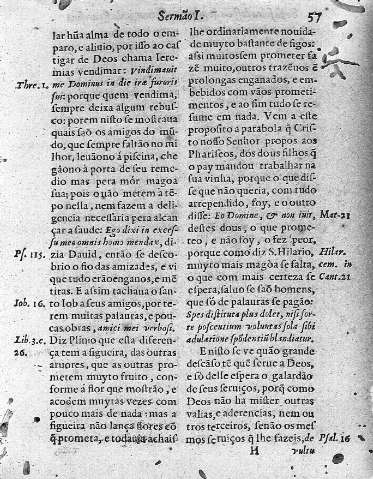 Sermão I. 57
lar hũa alma de todo o em-
paro, e aliuio, por isso ao cas
tigar de Deos chama Iere-
mias vendimar: Vindimauit
Thre. 1. me Dominus in die iræ furoris
sui: porque quem vendima,
sempre deixa algum rebus-
co: porem nisto se mostraua
quais saõ os amigos do mũ-
do, que sempre faltão no mi
lhor, leuãono á piscina, che
gãono á porta de seu reme-
dio mas pera mór magoa
sua; pois o não merem a tẽ-
po nella, nem fazem a deli-
gencia necessaria pera alcan
çar a saude: Ego dixi in exces-
su meo omnis homo mendax, di-
Ps. 115. zia Dauid, então se desco-
brio o fio das amizades, e vi
que tudo erão enganos, e mẽ
tiras. E assim tachaua o san-
Iob. 16. to Iob a seus amigos, por te-
rem muitas palauras, e pou-
cas obras, amici mei verbosi.
Lib. 3. c. Diz Plinio que esta diferen-
26. ça tem a figueira, das outras
aruores, que as outras pro-
metem muyto fruito, con-
forme á flor que mostrão, e
acodem muytas vezes com
pouco mais de nada: mas a
figueira não lança flores cõ
q̃ prometa, e todauia achais
lhe ordinariamente nouida-
de muyto bastante de figos:
assi muitos sem prometer fa
zẽ muito, outros trazẽnos ẽ
prolongas enganados, e em-
bebidos com vãos prometi-
mentos, e ao fim tudo se re-
sume em nada. Vem a este
proposito a parabola q̃ Cris-
to nosso Senhor propos aos
Phariseos, dos dous filhos q̃
o pay mandou trabalhar na
sua vinha, porque o que dis-
se que não queria, com tudo
arrependido, foy, e o outro
disse: Eo Domine, & non iuit, Mat. 21
destes dous, o que prome-
teo, e não foy, o fez peor,
porque como diz S. Hilario, Hilar.
muyto mais magôa se falta, cem. in
o que com mais certeza se Cant. 21
espera, salso se saõ homens,
que só de palauras se pagão:
Spes distituta plus dolet, nisi for-
te poscentium voluntas sola sibi
adulatione spõdentis blandiatur.
E nisto se ve quão grande
descãso tẽ quẽ serue a Deos,
e só delle espera o galardão
de seus seruiços, porq̃ como
Deos não ha mister outras
valias, e aderencias, nem ou
tros terceiros, senão os mes
mos seruiços q̃ lhe fazeis, de Psal. 16
H vultu